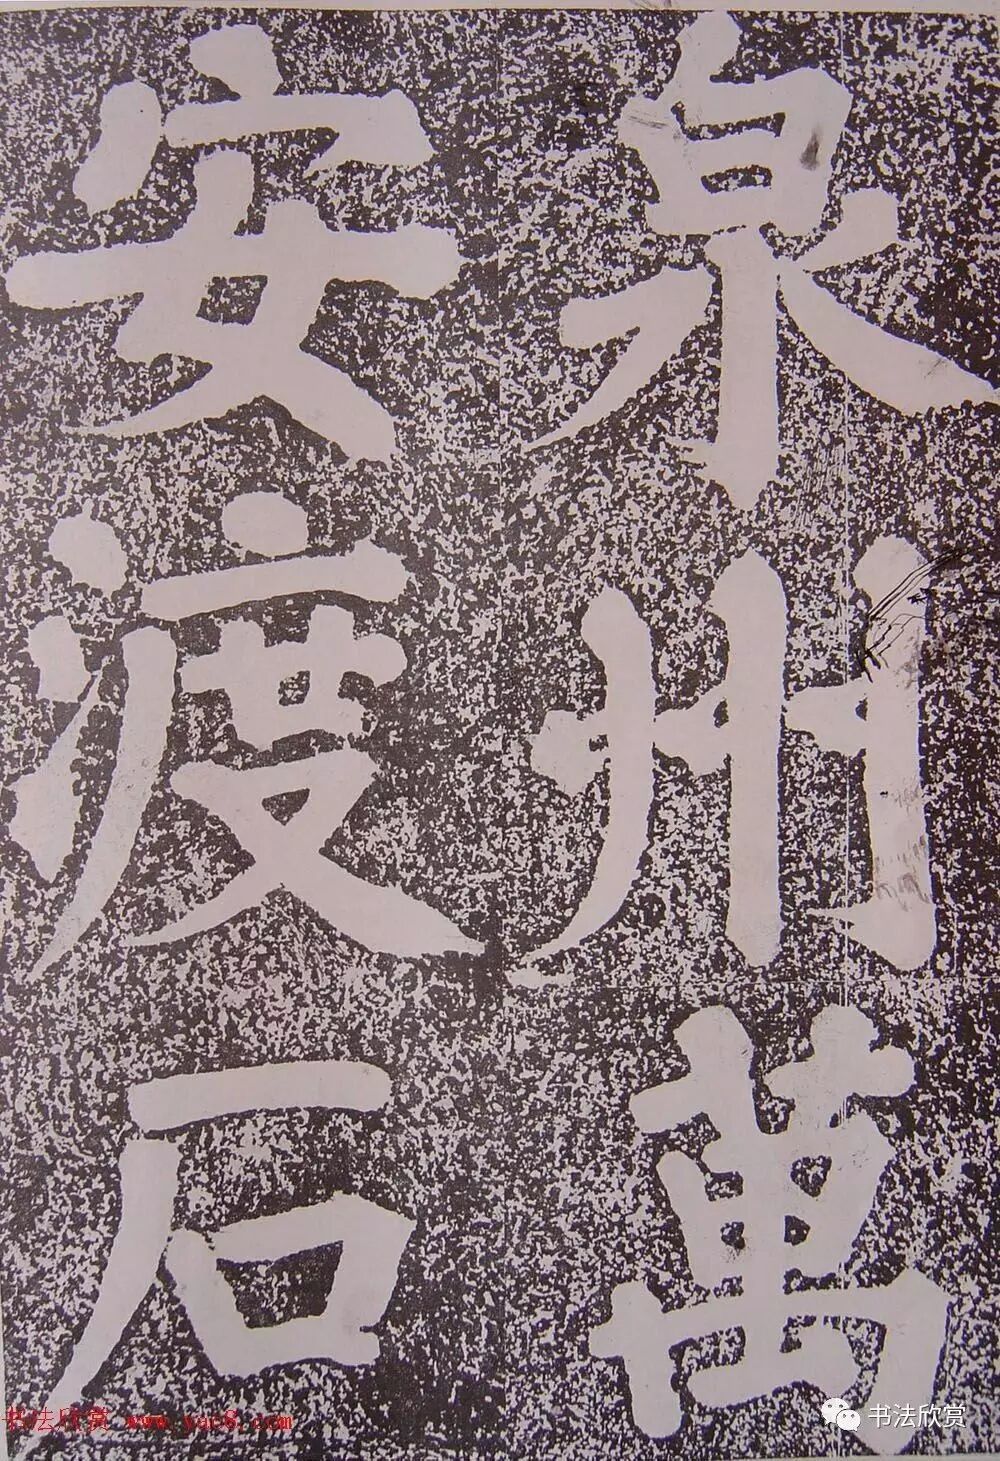 泉州萬
安渡石
书法欣赏 www.yac8.com
书法欣赏